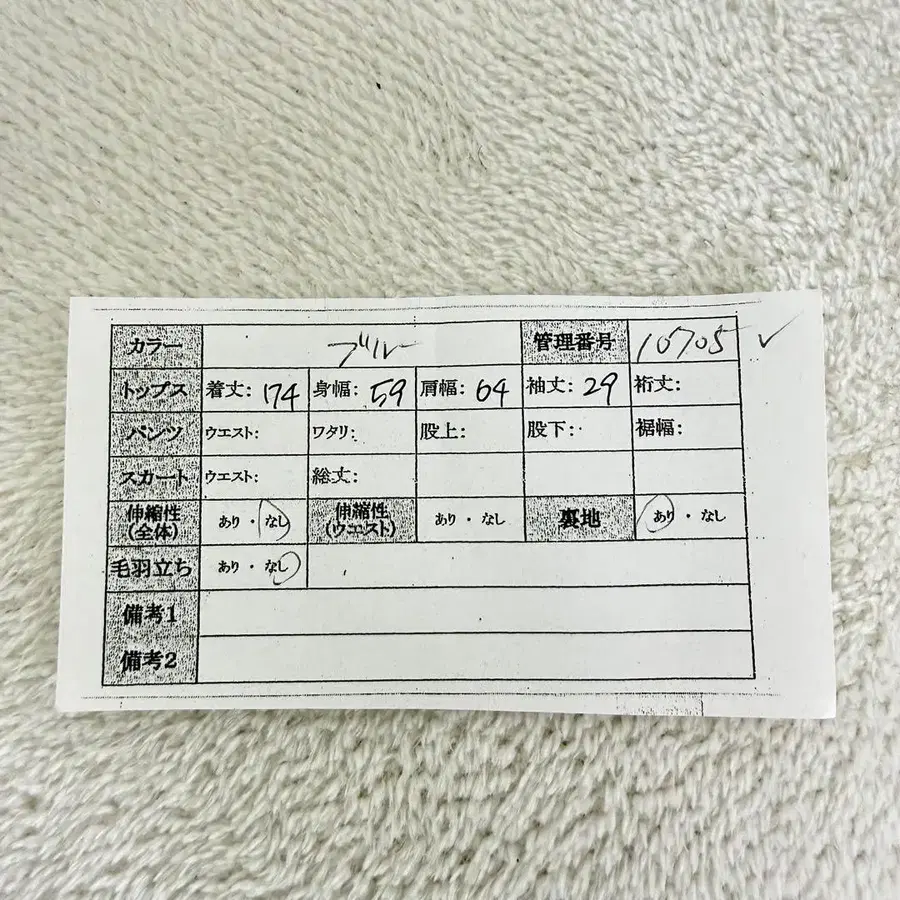 カラー ブルー 管理番号 10705 ✓
トップス 着丈: 174 身幅: 59 肩幅: 64 袖丈: 29 裄丈:
パンツ ウエスト: ワタリ: 股上: 股下: 裾幅:
スカート ウエスト: 総丈:
伸縮性(全体) あり・なし 伸縮性(ウエスト) あり・なし 裏地 あり・なし
毛羽立ち あり・なし
備考1
備考2